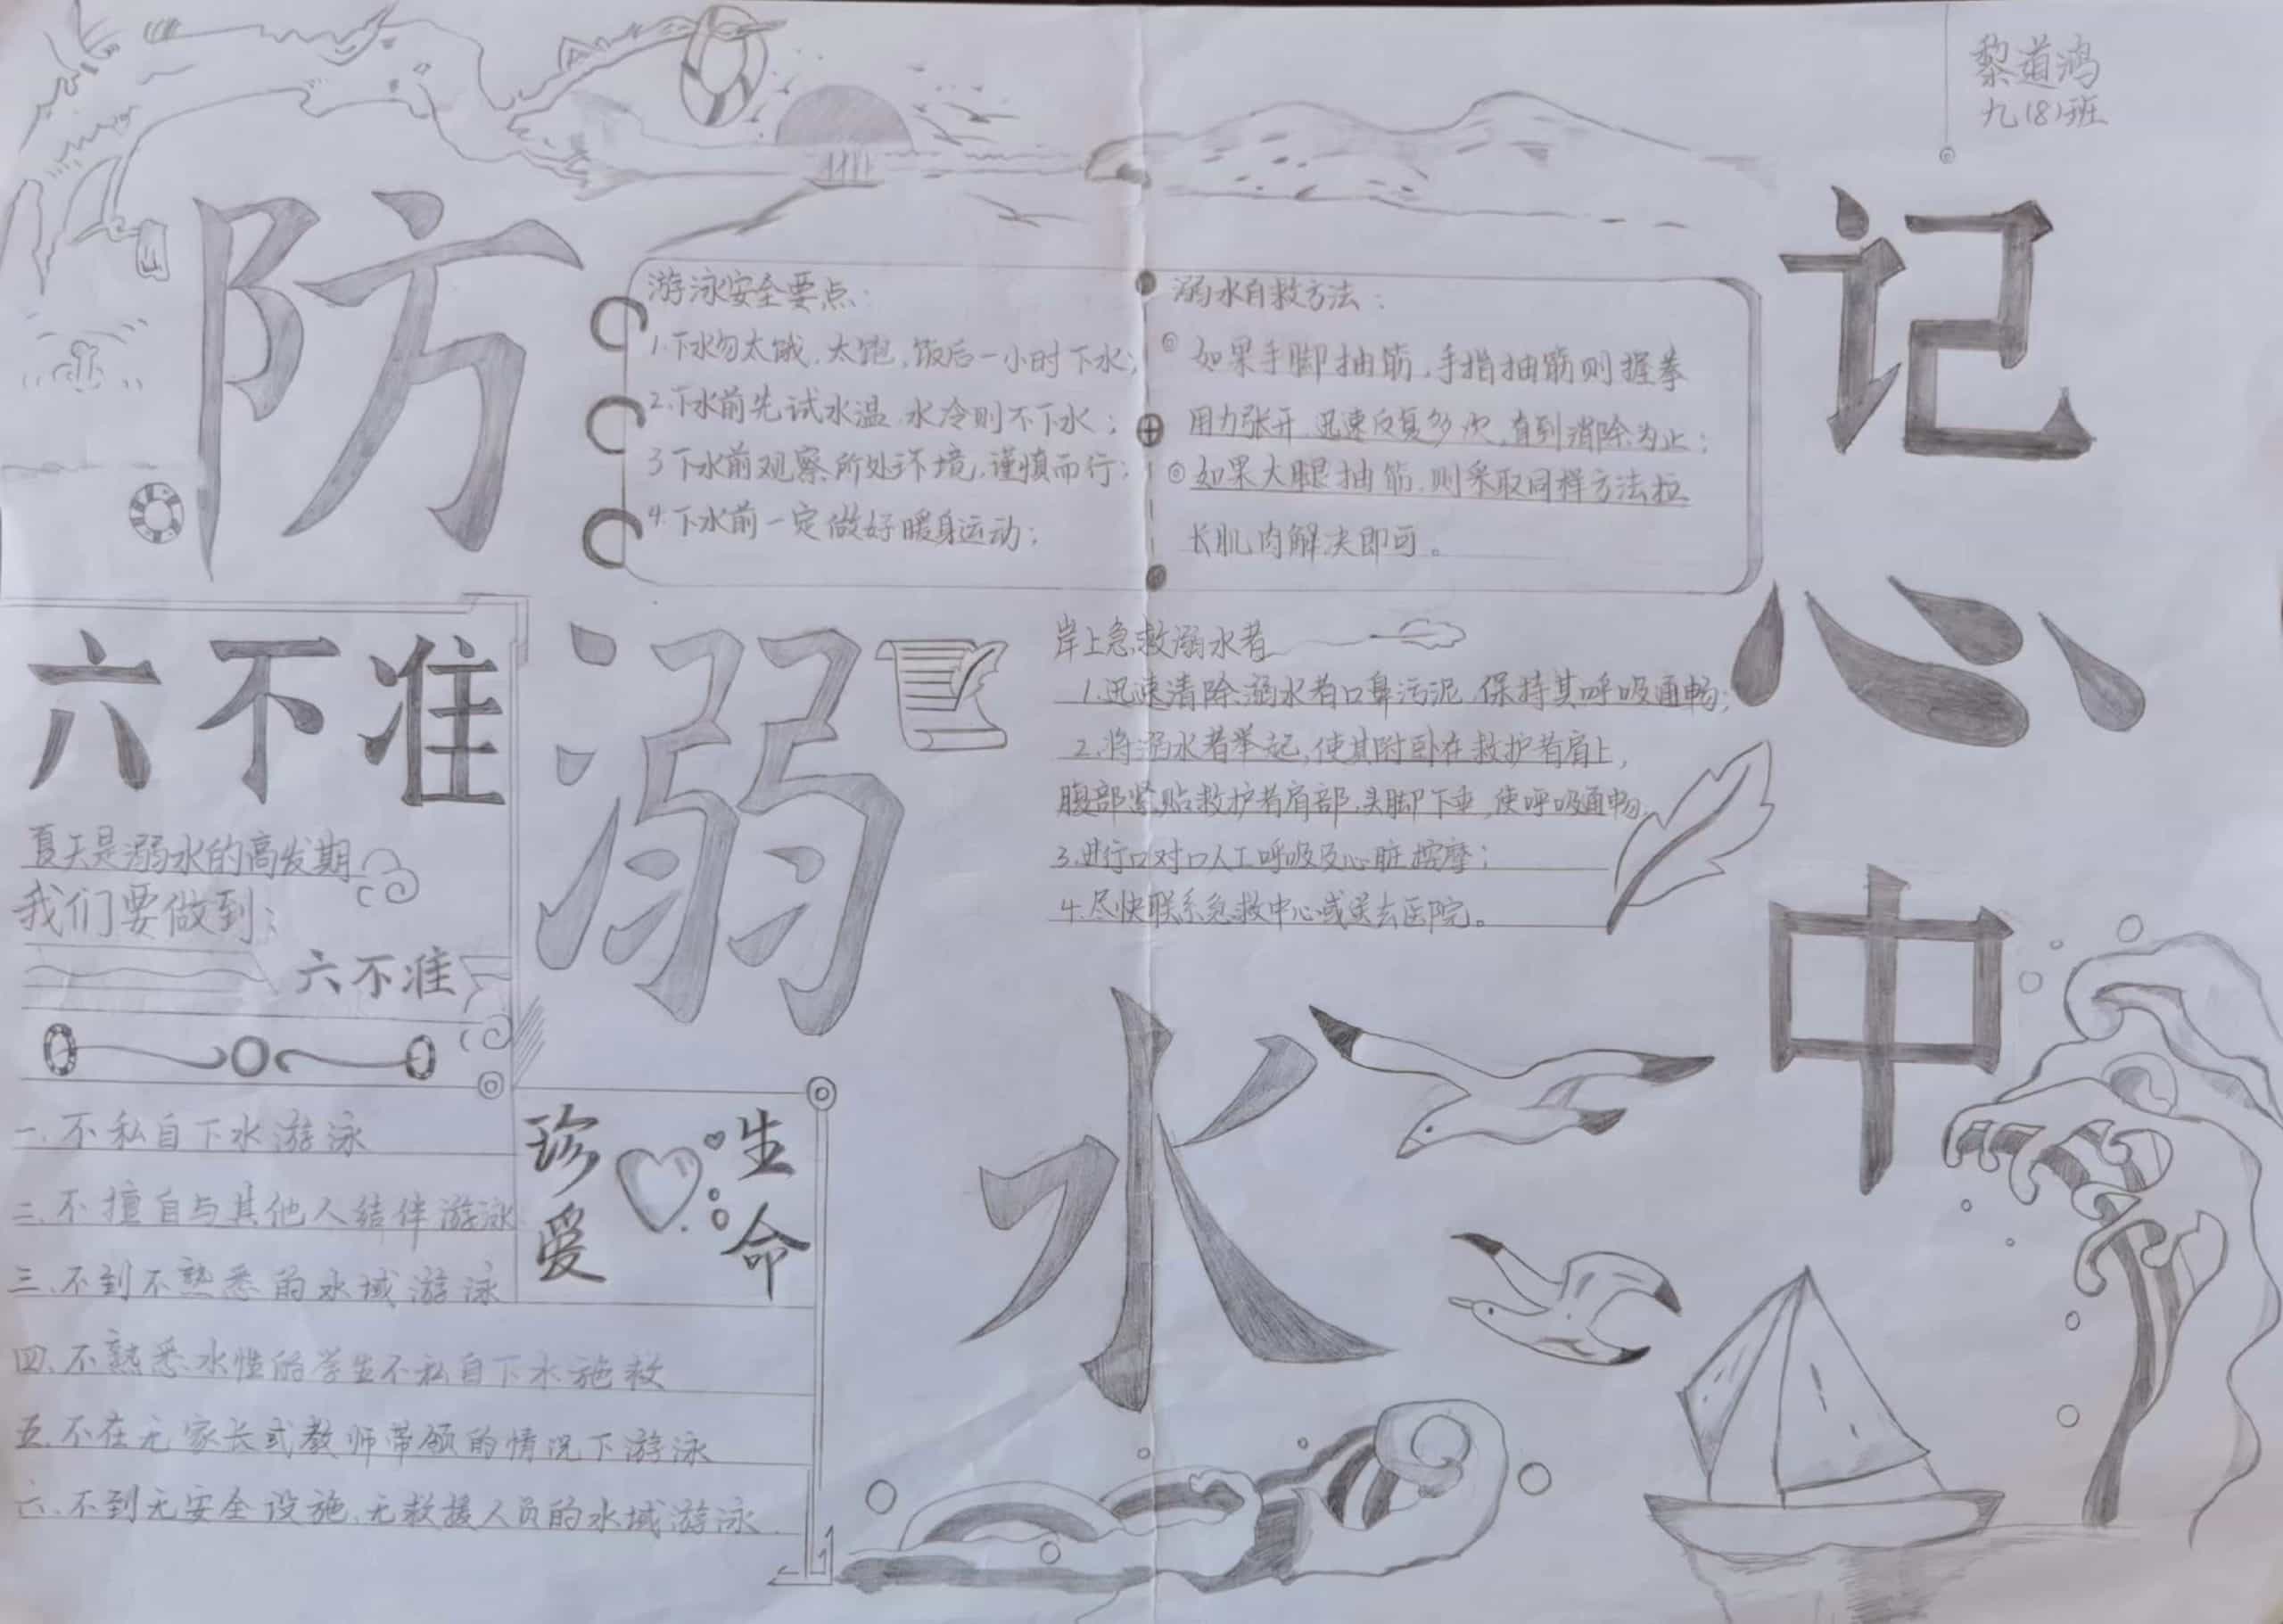 黎道鸿
九(8)班
防
溺
水
记
心
中
游泳安全要点:
1.下水勿太饿、太饱,饭后一小时下水;
2.下水前先试水温,水冷则不下水;
3下水前观察所处环境,谨慎而行;
4.下水前一定做好暖身运动;
溺水自救方法:
如果手脚抽筋,手指抽筋则握拳
用力张开,迅速反复多次,直到消除为止;
如果大腿抽筋,则采取同样方法拉
长肌肉解决即可。
岸上急救溺水者
1.迅速清除溺水者口鼻污泥,保持其呼吸通畅;
2.将溺水者举起,使其附卧在救护者肩上,
腹部紧贴救护者肩部,头脚下垂,使呼吸通畅。
3.进行口对口人工呼吸及心脏按摩;
4.尽快联系急救中心或送去医院。
六不准
夏天是溺水的高发期
我们要做到:
六不准
一.不私自下水游泳
二.不擅自与其他人结伴游泳
三.不到不熟悉的水域游泳
四.不熟悉水性的学生不私自下水施救
五.不在无家长或教师带领的情况下游泳
六.不到无安全设施、无救援人员的水域游泳
珍爱
生命